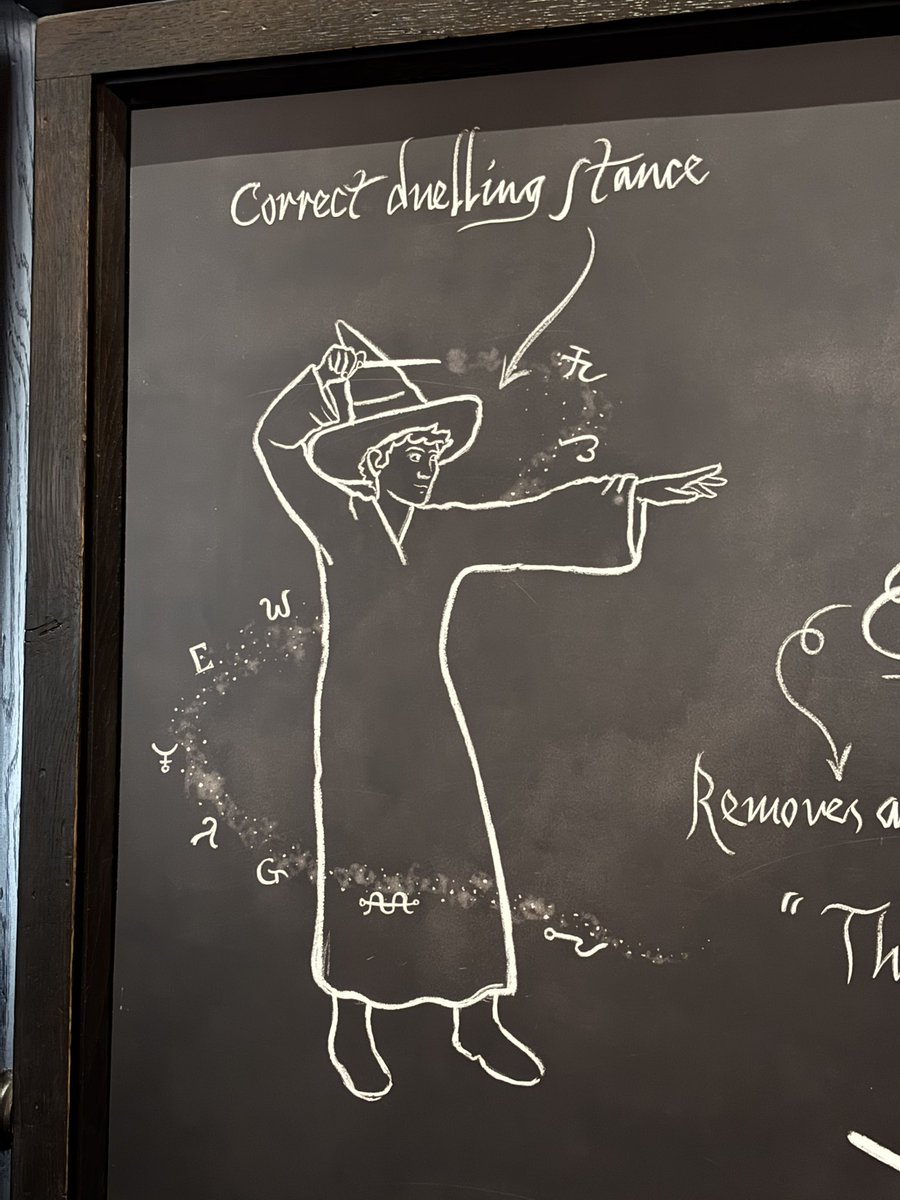 Correct duelling stance
W
E
G
Removes
" Th